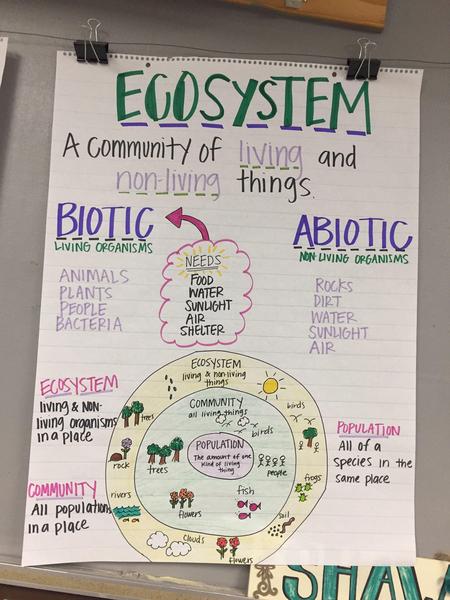 ECOSYSTEM
A Community of living and
non-living things.
BIOTIC
LIVING ORGANISMS
ANIMALS
PLANTS
PEOPLE
BACTERIA
NEEDS
FOOD
WATER
SUNLIGHT
AIR
SHELTER
ABIOTIC
NON LIVING ORGANISMS
ROCKS
DIRT
WATER
SUNLIGHT
AIR
ECOSYSTEM
living & NON-
living organisms
in a place
COMMUNITY
All populations
in a place
ECOSYSTEM
living & non-living
things
COMMUNITY
all living things
POPULATION
The amount of one
kind of living
thing
birds
birds
trees
trees
rock
people
frogs
rivers
flowers
fish
soil
clouds
flowers
POPULATION
All of a
species in the
same place